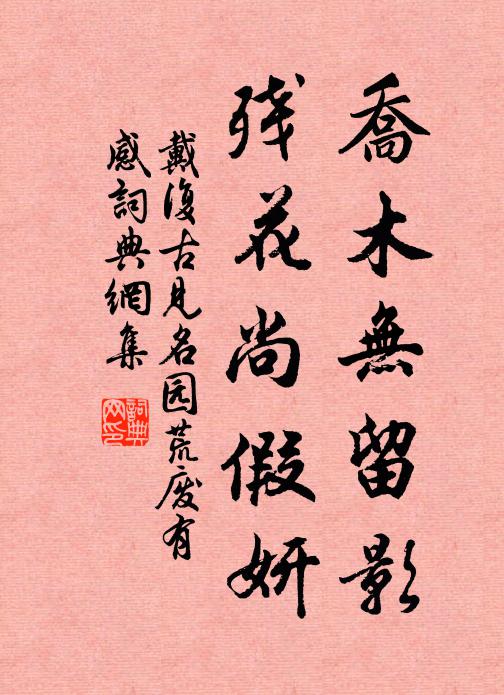 喬木無留影
残花尚假妍
戴復古見名园荒廢有
感詞典網集
詞典
网印